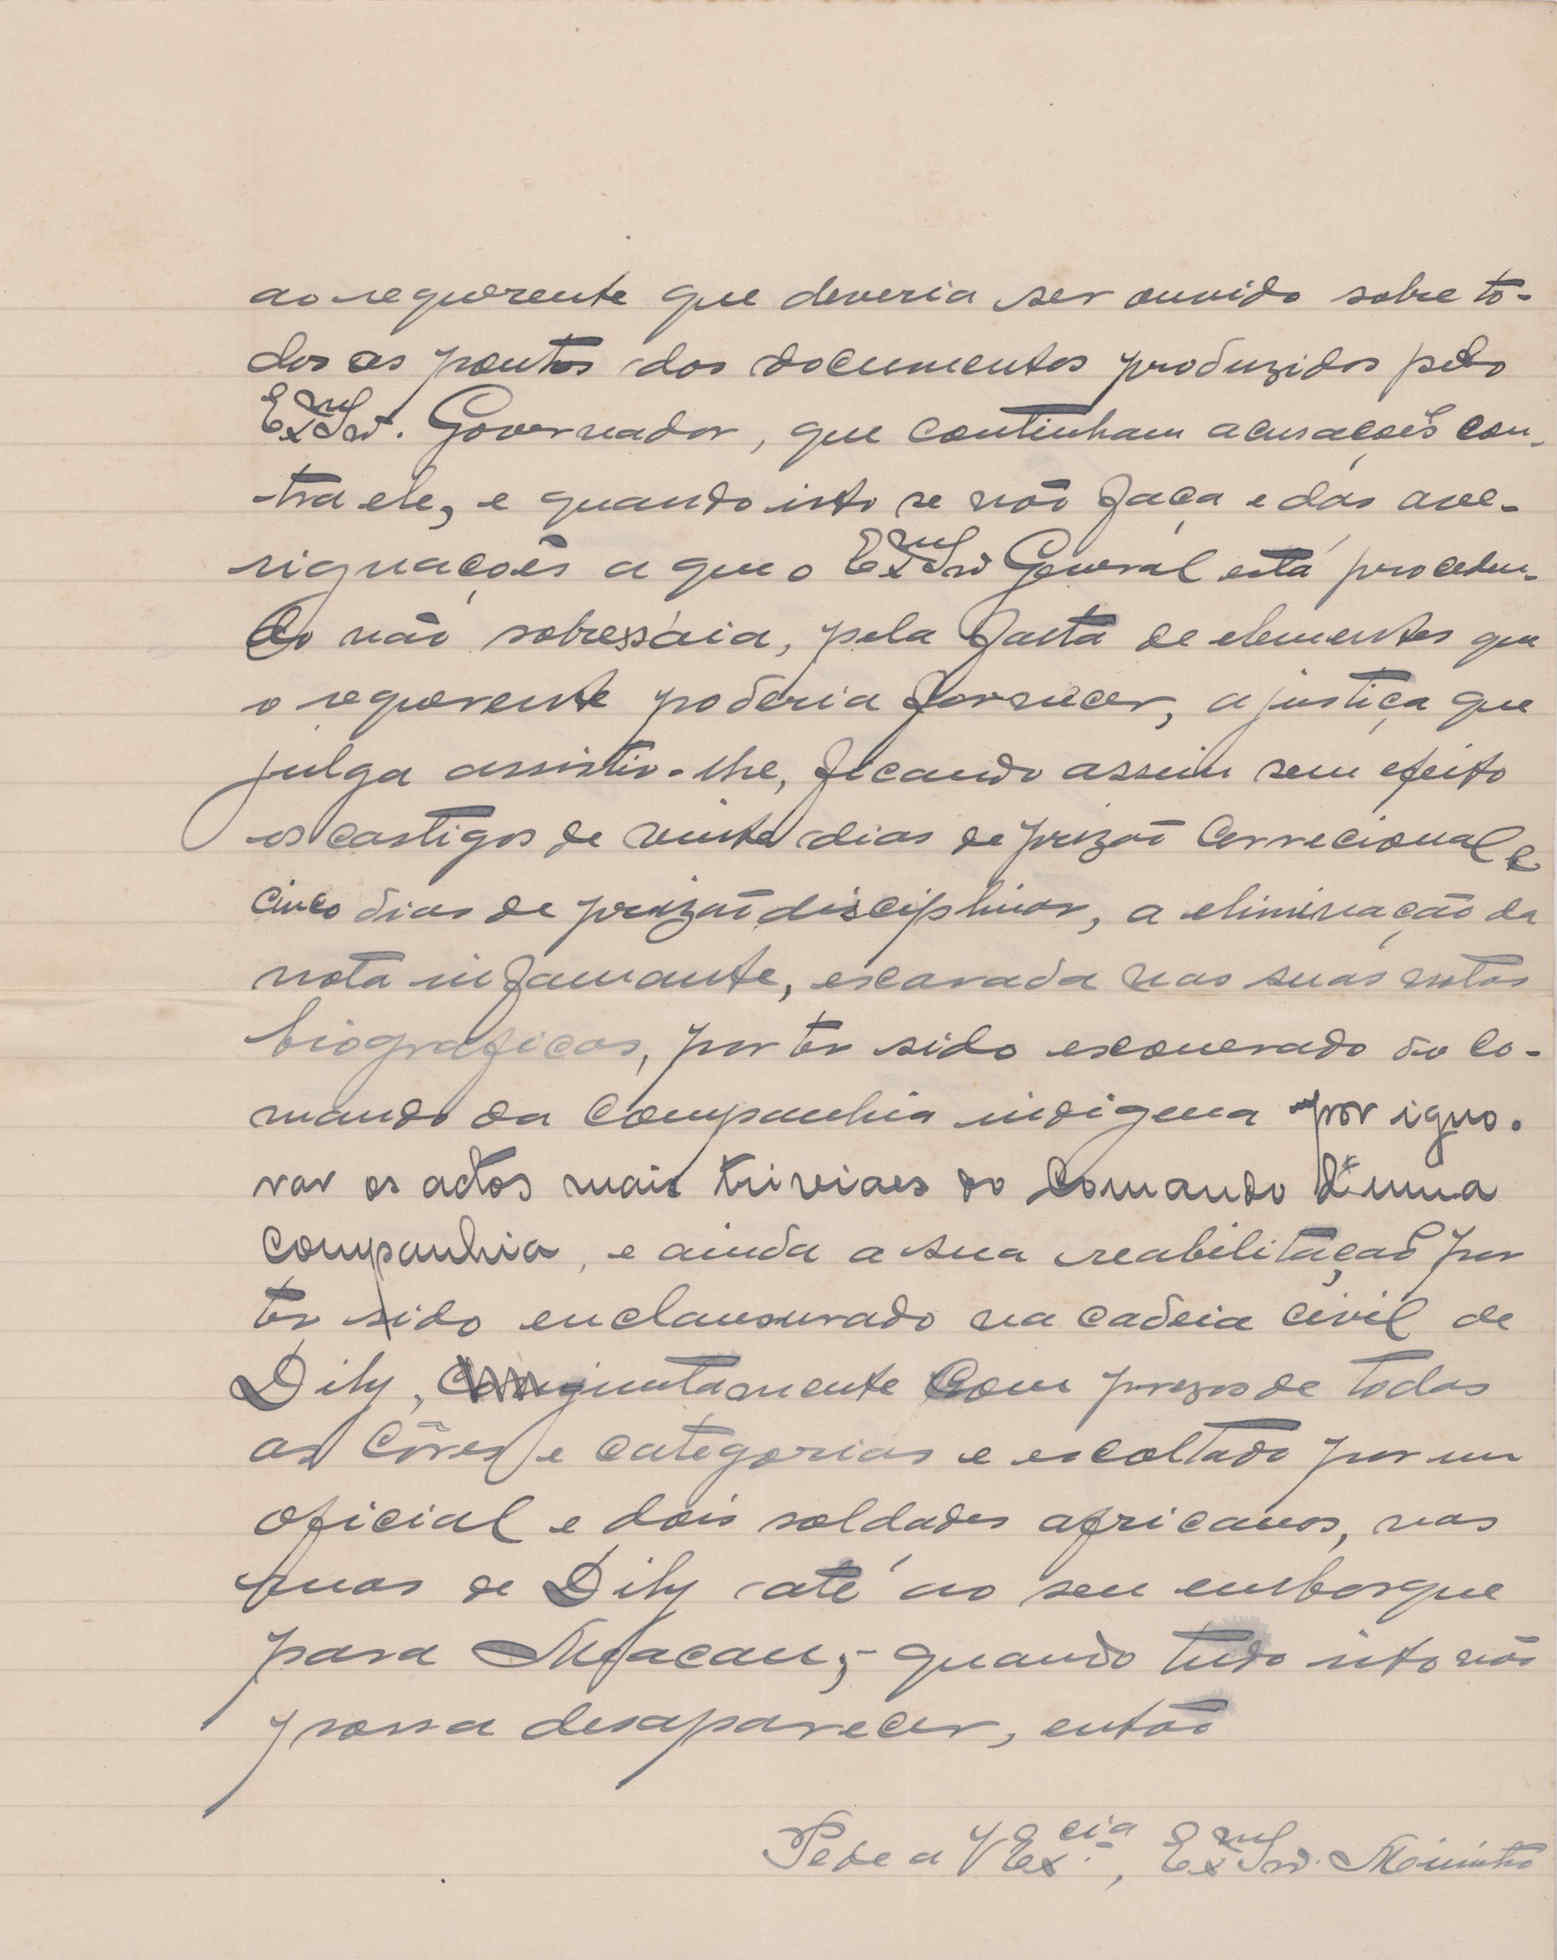 ao requerente que deveria ser ouvido sobre to-
dos os pontos dos documentos produzidos pelo
Exmo Snr. Governador, que continham acusações con-
tra ele, e quando isto se não faça e das ave-
riguações a que o Exmo Snr General está proceden-
do não sobressáia, pela falta de elementos que
o requerente poderia fornecer, a justiça que
julga assistir-lhe, ficando assim sem efeito
os castigos de vinte dias de prizão correcional e
cinco dias de prizão disciplinar, a eliminação da
nota infamante, escarada nas suas notas
biograficas, por ter sido exonerado do co-
mando da Companhia indigena por igno-
rar os actos mais triviaes do Comando d'uma
Companhia, e ainda a sua reabilitação por
ter sido enclausurado na cadeia civil de
Dily, conjuntamente com prezos de todas
as Côres e categorias e escoltado por um
oficial e dois soldados africanos, nas
ruas de Dily até ao seu embarque
para Macau; - quando tudo isto não
possa desaparecer, então
Pede a V Excia, Exmo Snr. Ministro